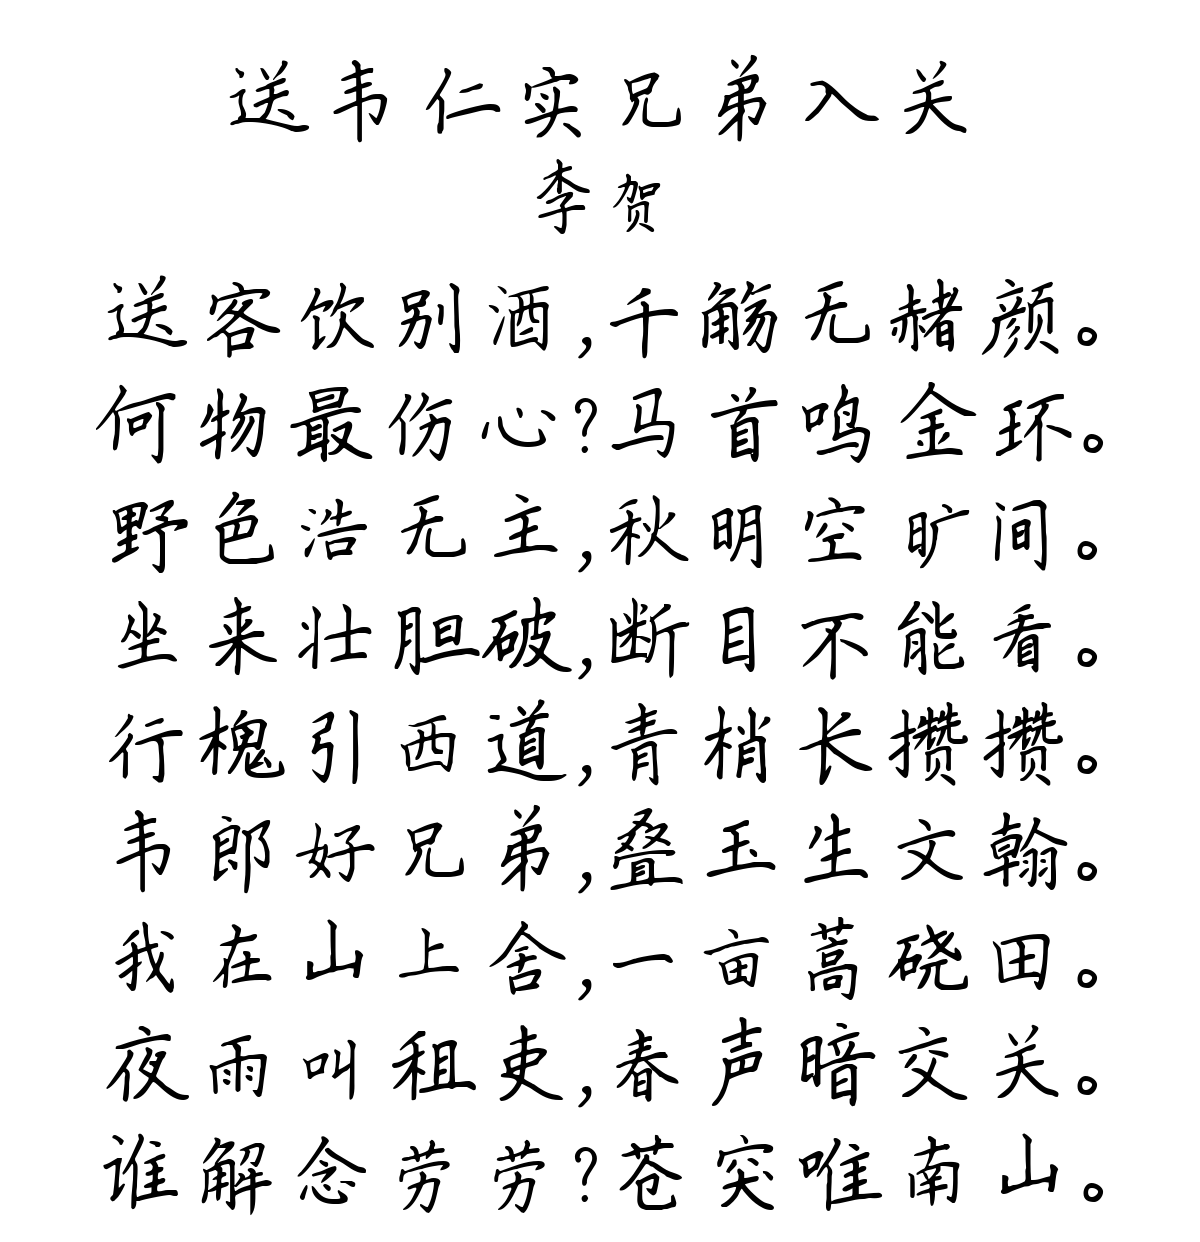 送韦仁实兄弟入关
李贺
送客饮别酒,千觞无赭颜。
何物最伤心?马首鸣金环。
野色浩无主,秋明空旷间。
坐来壮胆破,断目不能看。
行槐引西道,青梢长攒攒。
韦郎好兄弟,叠玉生文翰。
我在山上舍,一亩蒿硗田。
夜雨叫租吏,春声暗交关。
谁解念劳劳?苍突唯南山。